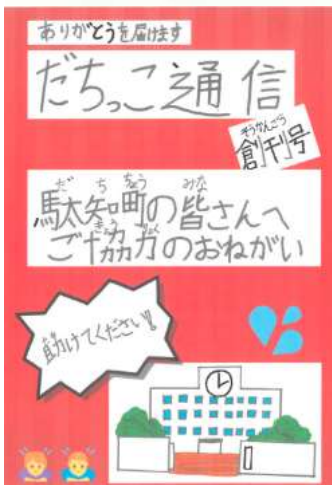 ありがとうを届けます
だちっこ通信
そうかんごう
創刊号
だちちょう みな
駄知町の皆さんへ
きょうりょく
ご協力のおねがい
助けてください!!